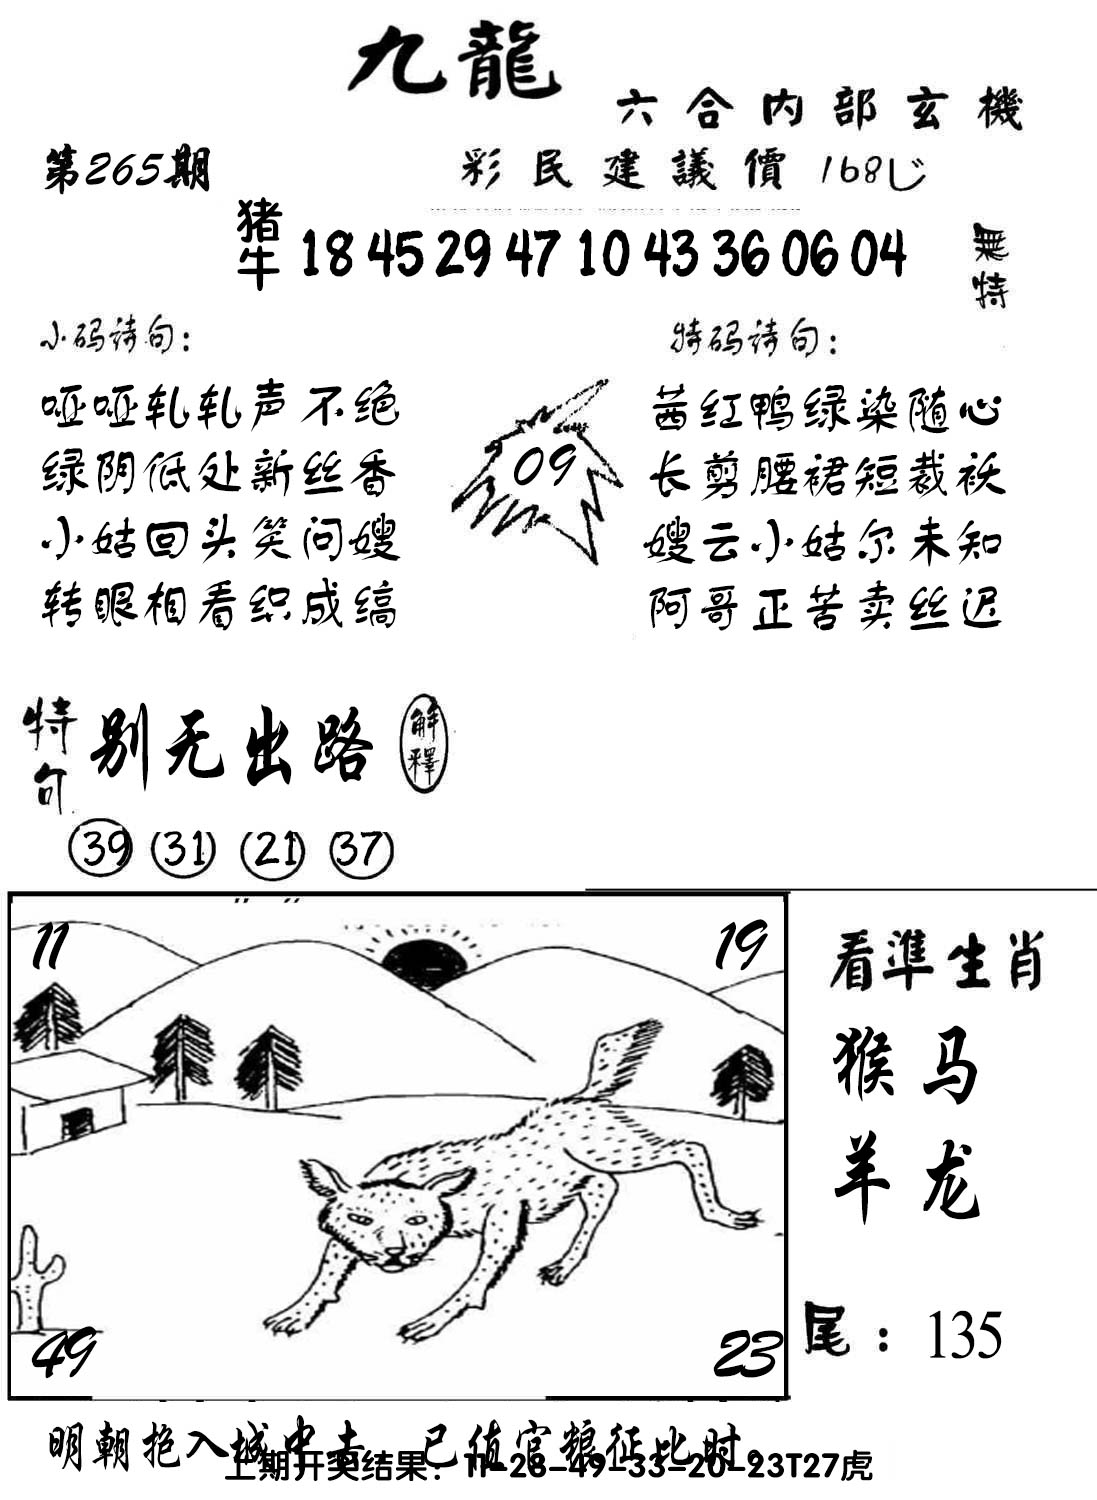 九龍
六合内部玄機
第265期
彩民建議價 168
猪牛 18 45 29 47 10 43 36 06 04
無特
小码诗句：
特码诗句：
哑哑轧轧声不绝
绿阴低处新丝香
小姑回头笑问嫂
转眼相看织成缟
09
茜红鸭绿染随心
长剪腰裙短裁袄
嫂云小姑尔未知
阿哥正苦卖丝迟
特句 别无出路 解釋
39 31 21 37
11
19
49
23
看準生肖
猴马
羊龙
尾：135
明朝抱入城中去 已值官粮征比时。
上期开奖结果：11-28-49-33-20-23T27虎